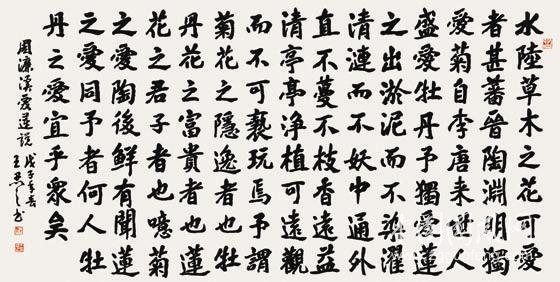 水陸草木之花可愛
者甚蕃晉陶淵明獨
愛菊自李唐来世人
盛愛牡丹予獨愛蓮
之出淤泥而不染濯
清漣而不妖中通外
直不蔓不枝香遠益
清亭亭净植可遠觀
而不可褻玩焉予謂
菊花之隱逸者也牡
丹花之富貴者也蓮
花之君子者也噫菊
之愛陶後鮮有聞蓮
之愛同予者何人牡
丹之愛宜乎衆矣
周濂溪愛蓮説 戊子年春
王